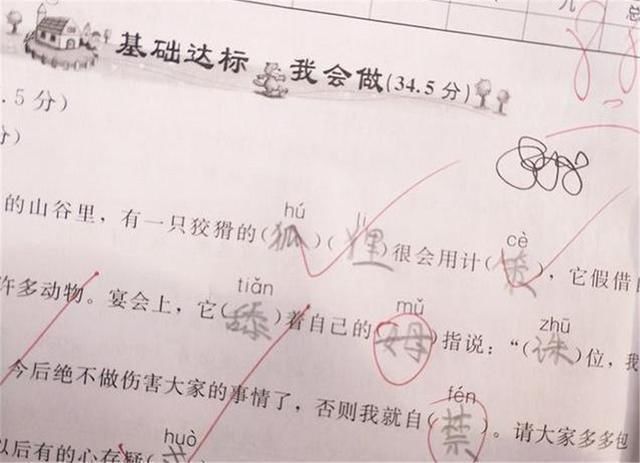 九 总
基础达标 我会做(34.5 分)
.5 分)
分)
hú li cè
的山谷里，有一只狡猾的(狐)(狸)很会用计(策)，它假借
tiǎn mǔ zhū
许多动物。宴会上，它(舔)着自己的(姆)指说：“(诛)位，我
fén
今后绝不做伤害大家的事情了，否则我就自(禁)。请大家多多包
huò
以后有的心存疑(